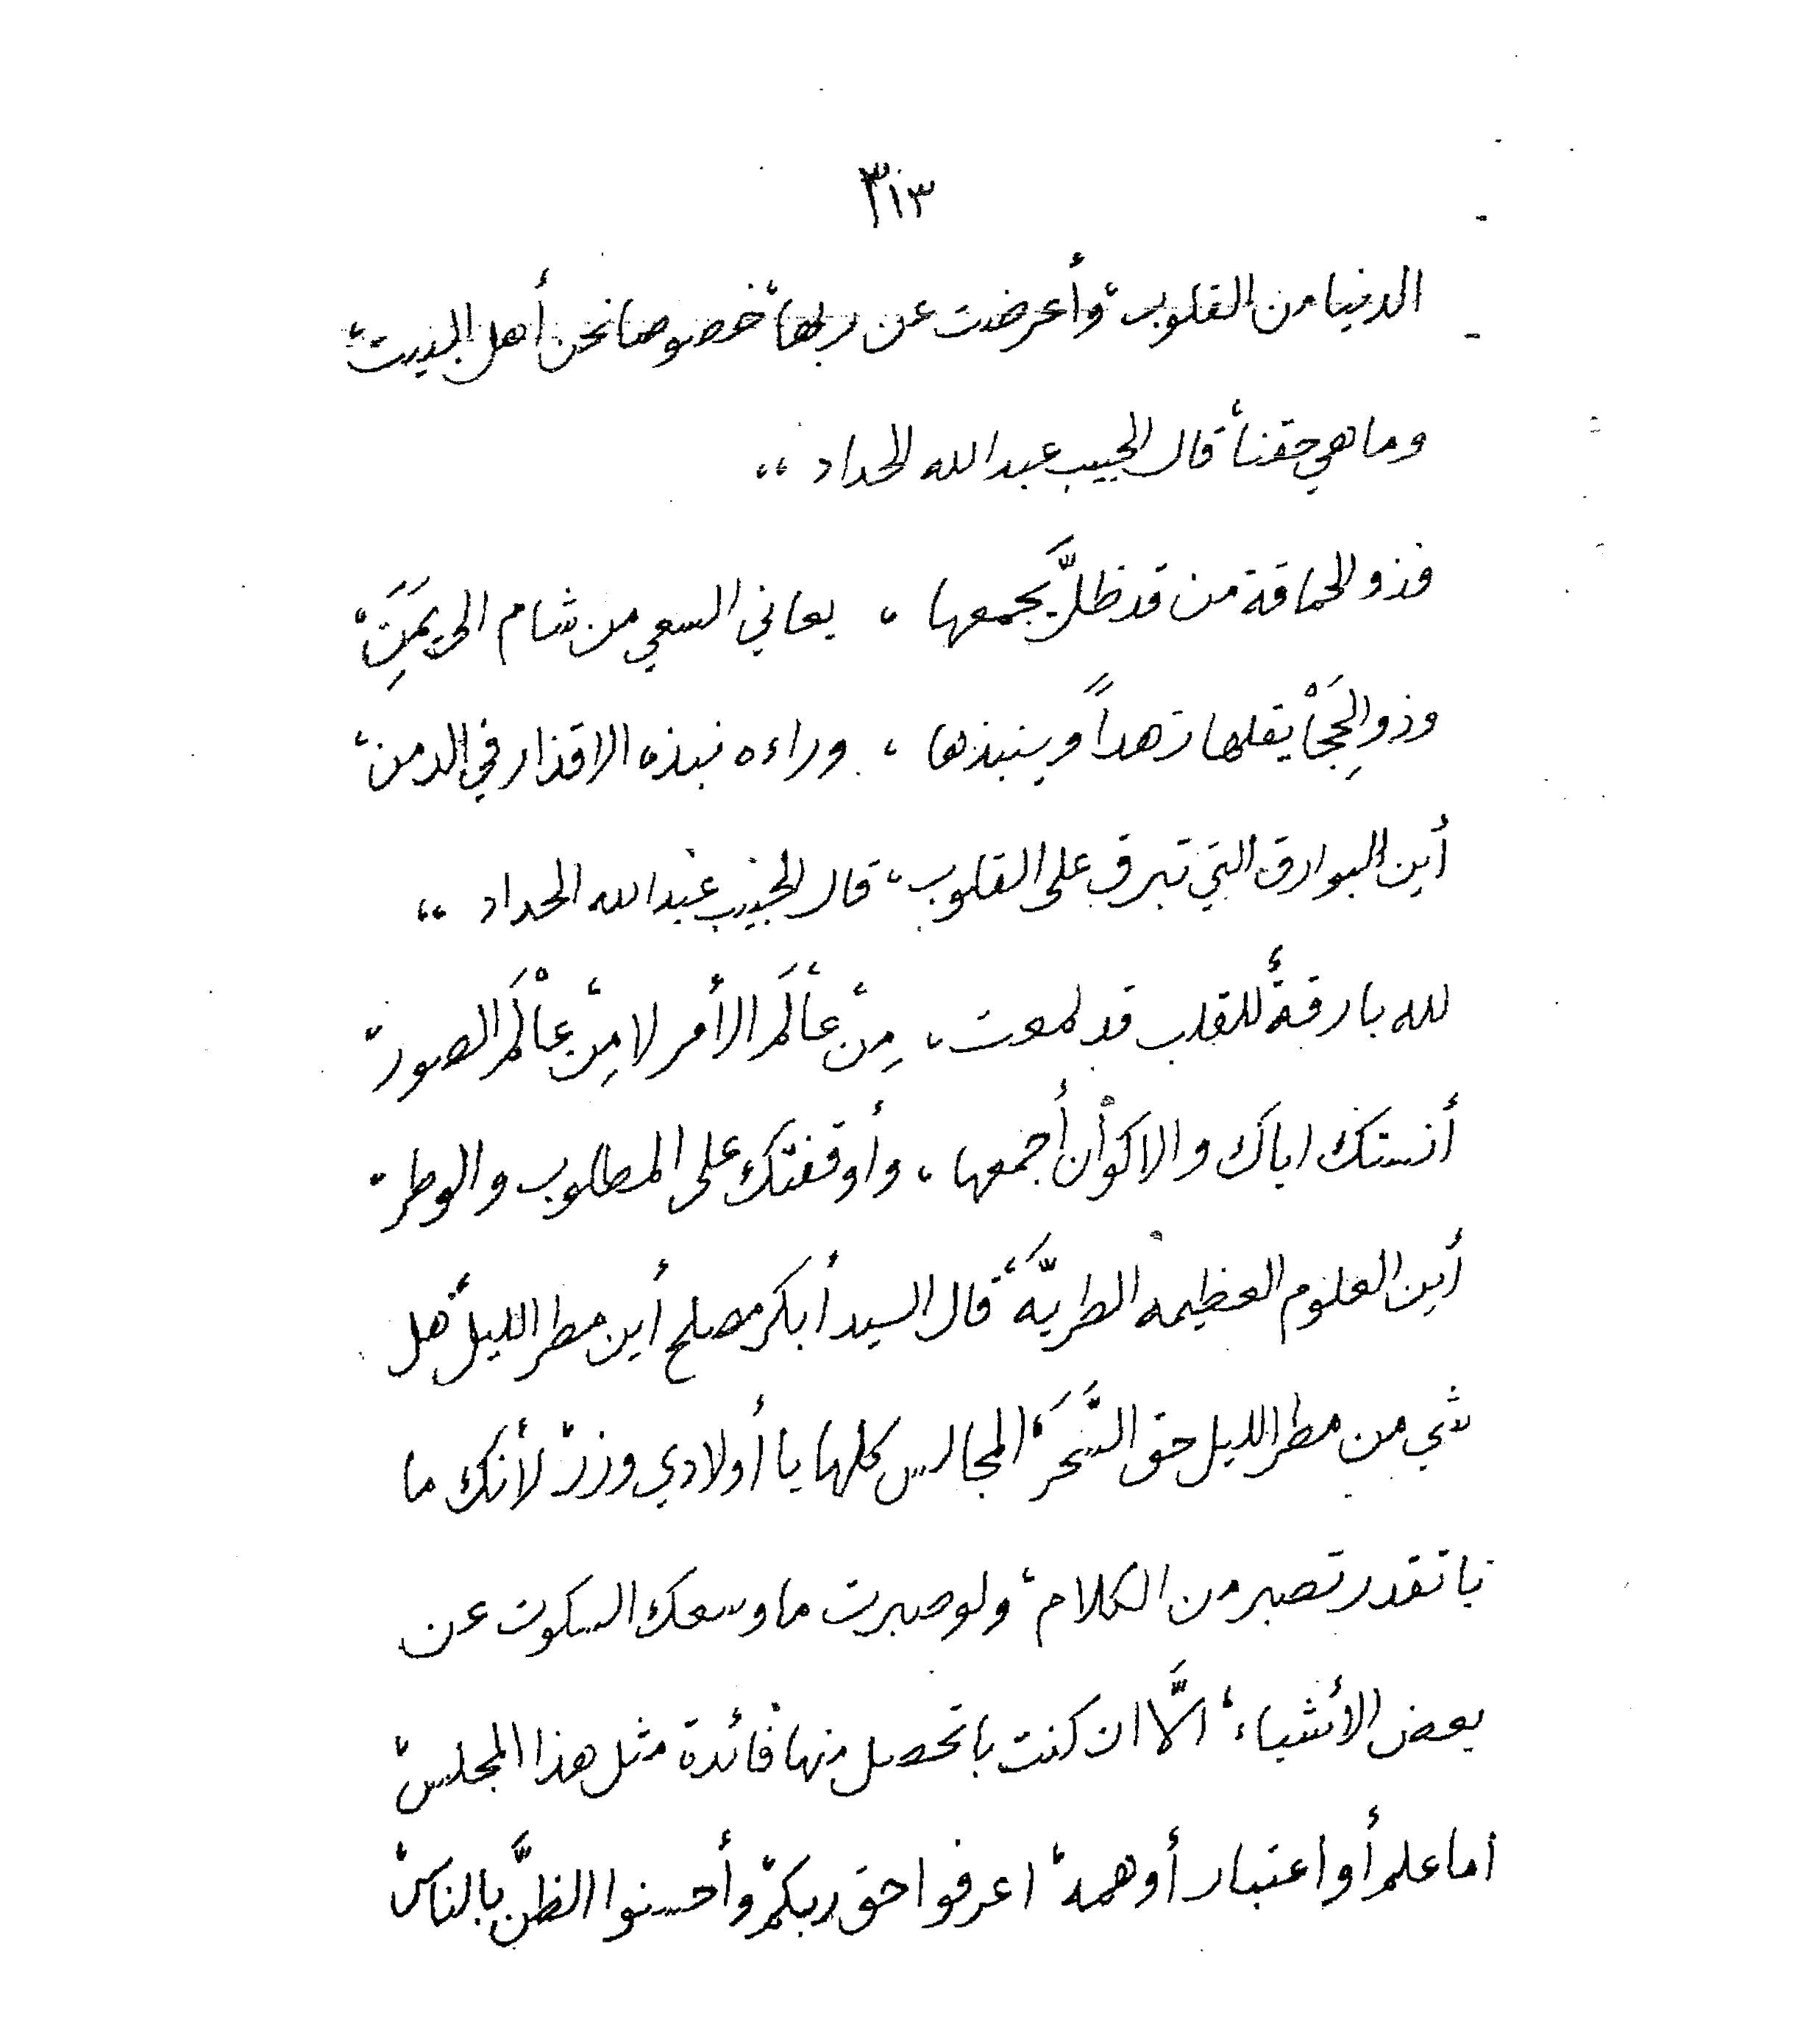 ٣١٣
الدنيا من القلوب، وأعرضت عن ربها، خصوصا نحن أهل البيت،
وما هي حقنا، قال الحبيب عبدالله الحداد ،،
فذو الحماقة من قد ظلَّ يجمعها ، يعاني السعي من شام الى يمَنِ،
وذو الِحجَا يقلها زهداً وينبذها ، وراءه نبذه الاقذار في الدمن،
أين البوارق التي تبرق على القلوب، قال الحبيب عبدالله الحداد ،،
لله بارقةٌ للقلب قد لمعت، مِنْ عاْلَم الأمر لا مِنْ عاْلَم الصور،
أنستك اياك والاكوان أجمعها ، وأوقفتك على المطلوب والوطر،
أين العلوم العظيمه الطريَّه، قال السيد أبكر مصلح أين مطر الليل، هل
شي من مطر الليل حق السَّحَر، المجالس كلها يا أولادي وزر، لأنك ما
باتقدر تصبر من الكلام، ولو صبرت ما وسعك السكوت عن
بعض الأشياء، الَّا ان كنت باتحصل منها فائدة مثل هذا المجلس،
اما علم أو اعتبار أو همه، اعرفوا حق ربكم، وأحسنوا الظنَّ بالناس،